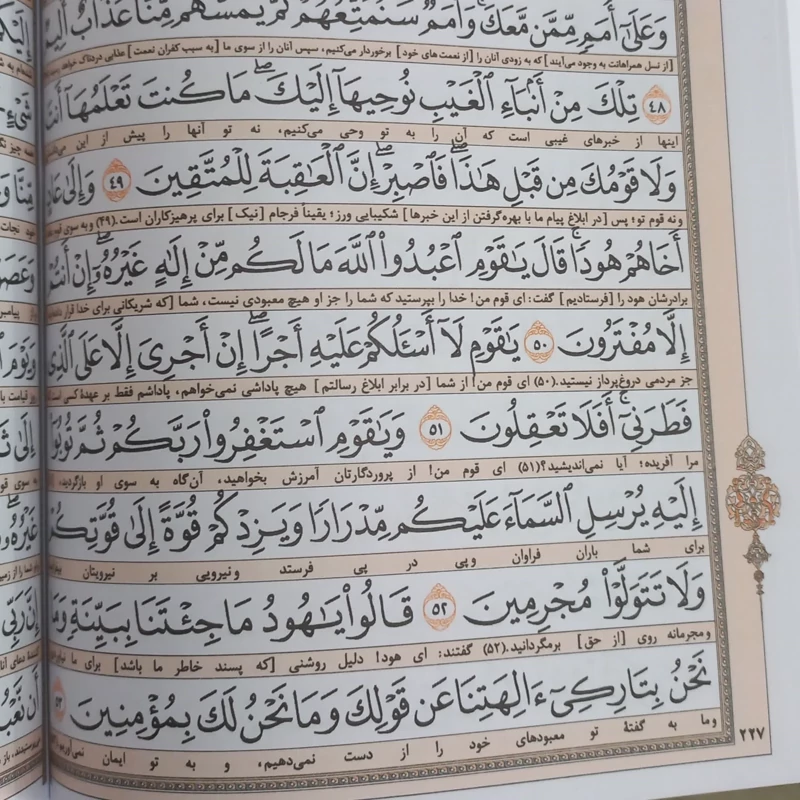 وَعَلَىٰٓ أُمَمٍ مِّمَّن مَّعَكَ وَأُمَمٌ سَنُمَتِّعُهُمْ ثُمَّ يَمَسُّهُم مِّنَّا عَذَابٌ
[از نسل همراهانت به وجود می‌آیند] که به زودی آنان را [از نعمت های خود] برخوردار می‌کنیم، سپس آنان را از سوی ما [به سبب کفران نعمت] عذابی دردناک خواهد
٤٨ تِلْكَ مِنْ أَنۢبَآءِ ٱلْغَيْبِ نُوحِيهَآ إِلَيْكَ ۖ مَا كُنتَ تَعْلَمُهَآ
اینها از خبرهای غیبی است که آن را به تو وحی می‌کنیم، نه تو آنها را پیش از این
وَلَا قَوْمُكَ مِن قَبْلِ هَٰذَا ۖ فَٱصْبِرْ ۖ إِنَّ ٱلْعَٰقِبَةَ لِلْمُتَّقِينَ ٤٩ وَإِلَىٰ
و نه قوم تو؛ پس [در ابلاغ پیام ما با بهره‌گرفتن از این خبرها] شکیبایی ورز؛ یقیناً فرجام [نیک] برای پرهیزکاران است.(۴۹) و به سوی
أَخَاهُمْ هُودًا ۚ قَالَ يَٰقَوْمِ ٱعْبُدُوا۟ ٱللَّهَ مَا لَكُم مِّنْ إِلَٰهٍ غَيْرُهُۥٓ ۖ إِنْ
برادرشان هود را [فرستادیم] گفت: ای قوم من! خدا را بپرستید که شما را جز او هیچ معبودی نیست، شما [که شریکانی برای خدا قرار
إِلَّا مُفْتَرُونَ ٥٠ يَٰقَوْمِ لَآ أَسْـَٔلُكُمْ عَلَيْهِ أَجْرًا ۖ إِنْ أَجْرِىَ إِلَّا عَلَى ٱلَّذِى
جز مردمی دروغ‌پرداز نیستید.(۵۰) ای قوم من! از شما [در برابر ابلاغ رسالتم] هیچ پاداشی نمی‌خواهم، پاداشم فقط بر عهدهٔ کسی است
فَطَرَنِىٓ ۚ أَفَلَا تَعْقِلُونَ ٥١ وَيَٰقَوْمِ ٱسْتَغْفِرُوا۟ رَبَّكُمْ ثُمَّ تُوبُوٓا۟
مرا آفریده؛ آیا نمی‌اندیشید؟(۵۱) ای قوم من! از پروردگارتان آمرزش بخواهید، آن‌گاه به سوی او بازگردید،
إِلَيْهِ يُرْسِلِ ٱلسَّمَآءَ عَلَيْكُم مِّدْرَارًا وَيَزِدْكُمْ قُوَّةً إِلَىٰ قُوَّتِكُمْ
برای شما باران فراوان و پی در پی فرستد و نیرویی بر نیرویتان
وَلَا تَتَوَلَّوْا۟ مُجْرِمِينَ ٥٢ قَالُوا۟ يَٰهُودُ مَا جِئْتَنَا بِبَيِّنَةٍ وَمَا
و مجرمانه روی [از حق] برمگردانید.(۵۲) گفتند: ای هود! دلیل روشنی [که پسند خاطر ما باشد] برای ما
نَحْنُ بِتَارِكِىٓ ءَالِهَتِنَا عَن قَوْلِكَ وَمَا نَحْنُ لَكَ بِمُؤْمِنِينَ ٥٣
و ما به گفتهٔ تو معبودهای خود را از دست نمی‌دهیم، و به تو ایمان
۲۲۷